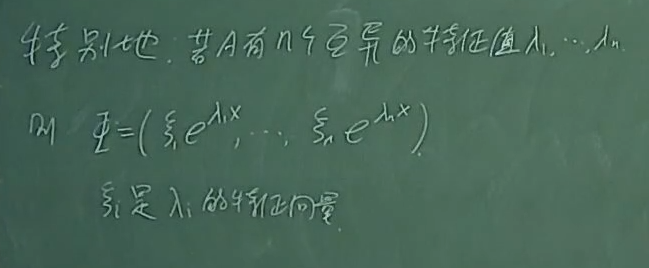 特别地,若A有n个互异的特征值λ₁,…,λₙ.
则 Φ=(ξ₁e^{λ₁x},…, ξₙe^{λₙx})
ξᵢ是λᵢ的特征向量.